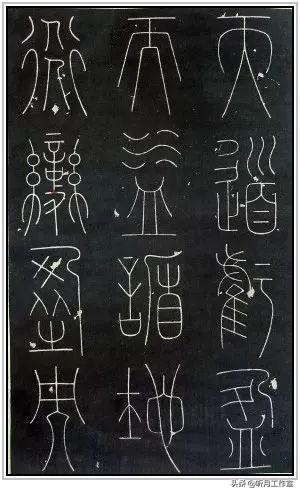 天道虧盈
而益謙地
道變盈而
头条@听月工作室